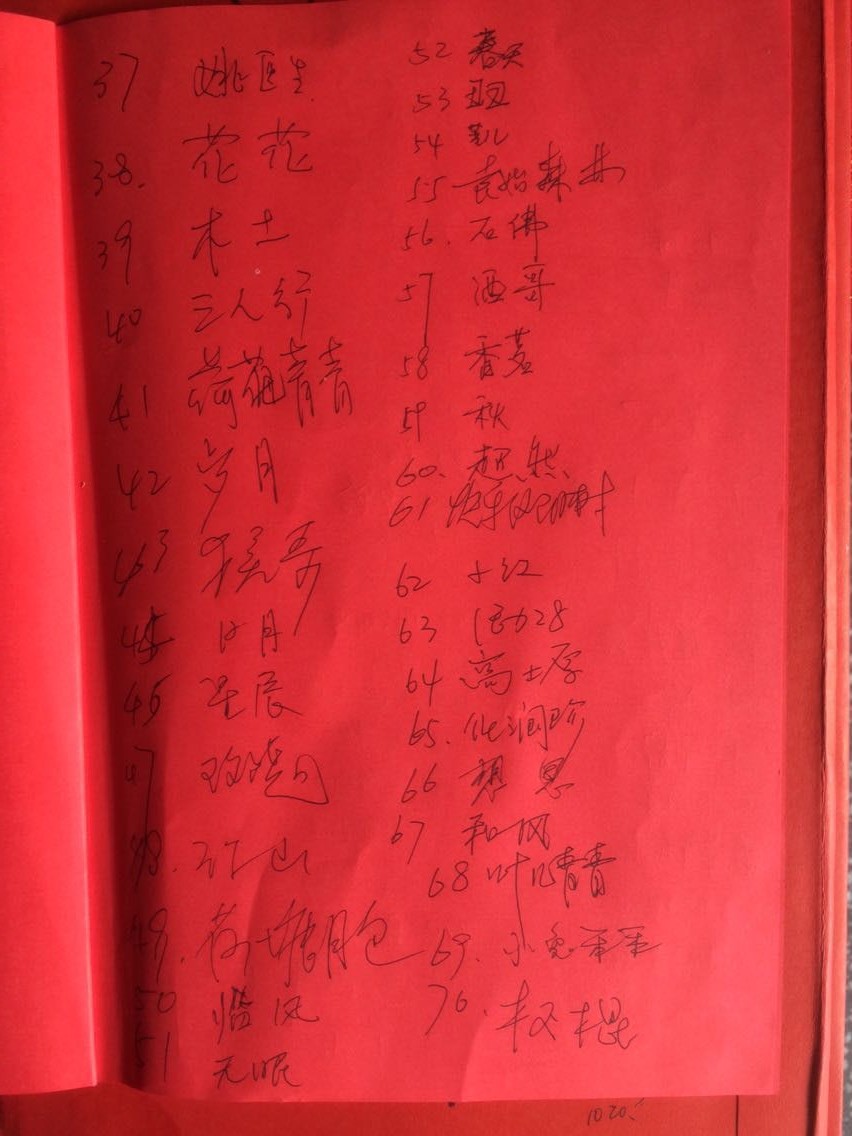 37 姚医生
38. 花花
39 木土
40 三人行
41 荷花青青
42 岁月
43 猴哥
45 日月
46 星辰
47
48. 江山
49. 荷塘月色
50 临风
51 无眠
52 春天
53 丑丑
54 凯
55 袁始森林
56. 石佛
57 酒哥
58 香茗
59 秋
60. 超然
61
62 小红
63 128
64 高土原
65. 化润珍
66 想思
67 和风
68 叶儿青青
69. 小兔乖乖
70. 权棍
1020.